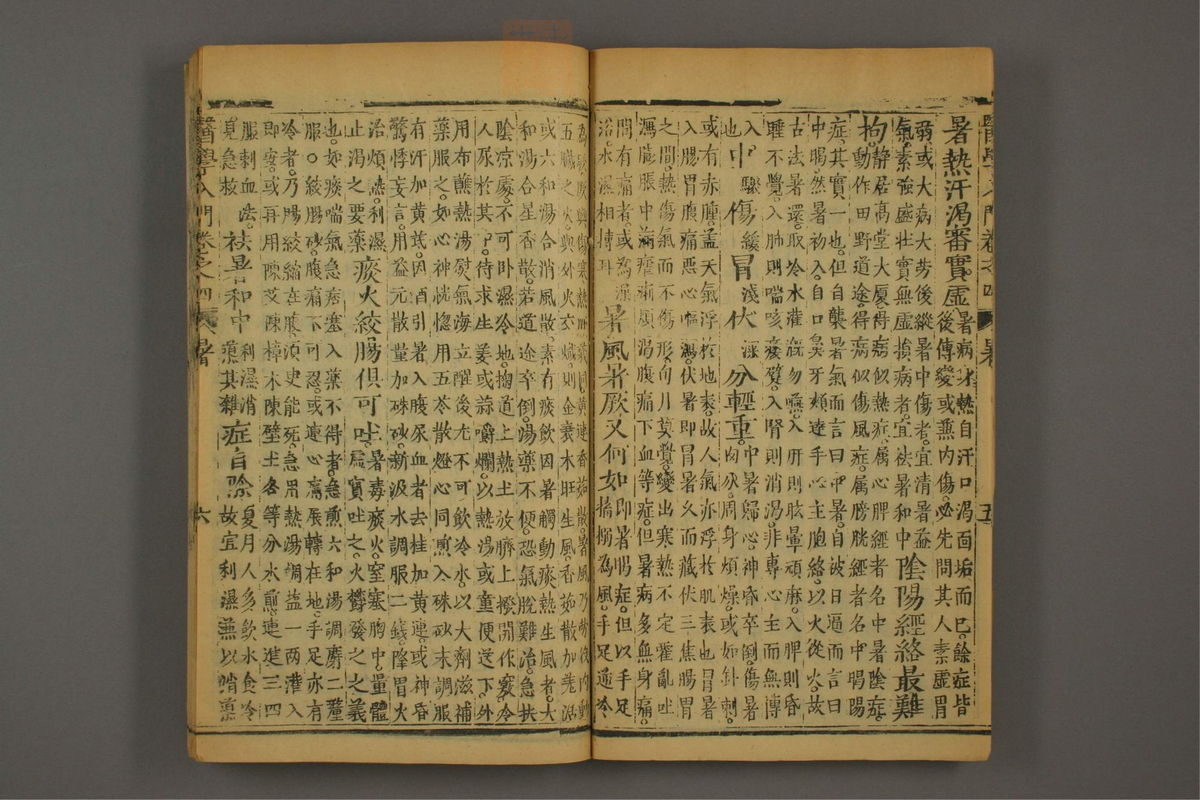 醫學入門卷之四 暑 五
暑熱汗渴審實虛暑病身熱自汗口渴面垢而已餘症皆
後傳變或兼內傷必先問其人素虛胃
弱或大病大勞後縱暑中傷者宜清暑益
氣素強盛壯實無虛損病者宜祛暑和中陰陽經絡最難
拘靜居高堂大廈得病似熱症屬心脾經者名中暑陰症
動作田野道途得病似傷風症屬膀胱經者名中暍陽
症其實一也但自襲暑氣而言曰中暑自被日逼而言曰
中暍然暑初入自口鼻牙頰達手心主胞絡以火從火故
古法暑還取冷水灌漑勿嚥入肝則眩暈頑麻入脾則昏
睡不覺入肺則喘咳痿躄入腎則消渴非專心主而無傳
入
也中驟傷緩冒淺伏深分輕重中暑歸心神昏卒倒傷暑
肉分周身煩燥或如針刺
或有赤腫蓋天氣浮於地表故人氣亦浮於肌表也冒暑
入腸胃腹痛惡心嘔瀉伏暑即冒暑久而藏伏三焦腸胃
之間熱傷氣而不傷形旬月莫覺變出寒熱不定霍亂吐
瀉膨脹中滿瘧痢煩渴腹痛下血等症但暑病多無身痛
間有痛者或為澡
浴水濕相搏耳暑風暑厥又何如即暑暍症但以手足
搐搦為風手足逆冷
為厥
五臟之火與外火交熾則金衰木旺生風香茹散加羌活
或六和湯合消風散素有痰飲因暑觸動痰熱生風者大
和湯合星香散若道途卒倒湯藥不便恐氣脫難治急扶
陰涼處不可臥濕冷地掬道上熱土放臍上撥開作竅令
人尿於其中待求生姜或蒜嚼爛以熱湯或童便送下外
用布蘸熱湯熨氣海立醒後尤不可飲冷水以大劑滋補
藥服之如心神恍惚用五苓散燈心同煎入硃砂末調服
有汗加黃芪因酒引暑入腹尿血者去桂加黃連或神昏
驚悸妄言用益元散量加硃砂新汲水調服二錢降胃火
治煩熱利濕
止渴之要藥痰火絞腸俱可吐暑毒痰火窒塞胸中量體
虛實吐之火鬱發之之義
也如痰喘氣急痞塞入藥不得者急煎六和湯調麝二釐
服○絞腸痧腹痛不可忍或連心扃展轉在地手足亦有
冷者乃腸絞縮在腹須臾能死急用熱湯調鹽一兩灌入
即寧或再用陳艾陳樟木陳壁土各等分水煎連進三四
服刺血法
夏急救祛暑和中利濕消兼其雜症自除夏月人多飲水食冷
故宜利濕兼以消藥
醫學入門卷之四 暑 六